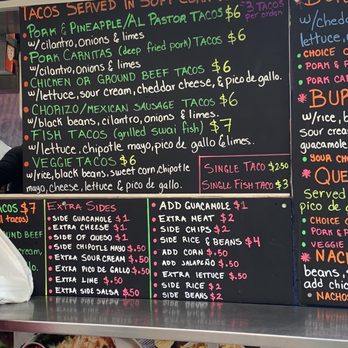 TACOS SERVED IN SOFT CORN
3 TACOS
per order
PORK & PINEAPPLE/AL PASTOR TACOS $6
w/cilantro, onions & limes
PORK CARNITAS (deep fried pork) TACOS $6
w/cilantro, onions & limes
CHICKEN OR GROUND BEEF TACOS $6
w/lettuce, sour cream, cheddar cheese, & pico de gallo.
CHORIZO/MEXICAN SAUSAGE TACOS $6
w/black beans, cilantro, onions & limes.
FISH TACOS (grilled swai fish) $7
w/lettuce, chipotle mayo, pico de gallo & limes.
VEGGIE TACOS $6
w/rice, black beans, sweet corn, chipotle
mayo, cheese, lettuce & pico de gallo.
SINGLE TACO $2.50
SINGLE FISH TACO $3
BU
w/chedda
lettuce,
CHOICE O
PORK & P
PORK CA
BU
w/rice,
sour crea
guacamo
YOUR CHO
QUE
Served
pico de
CHOICE O
PORK & P
VEGGIE
NACH
beans,
add chic
NACHOS
ACOS $7
tacos)
OUND BEEF
EXTRA SIDES
SIDE GUACAMOLE $1
EXTRA CHEESE $1
SIDE OF QUESO $1
SIDE CHIPOTLE MAYO $.50
EXTRA SOUR CREAM $.50
EXTRA PICO DE GALLO $.50
EXTRA LIME $.50
SIDE EXTRA SALSA $.50
ADD GUACAMOLE $1
EXTRA MEAT $2
SIDE CHIPS $2
SIDE RICE & BEANS $4
ADD CORN $.50
ADD JALAPEÑO $.50
EXTRA LETTUCE $.50
SIDE RICE $2
SIDE BEANS $2